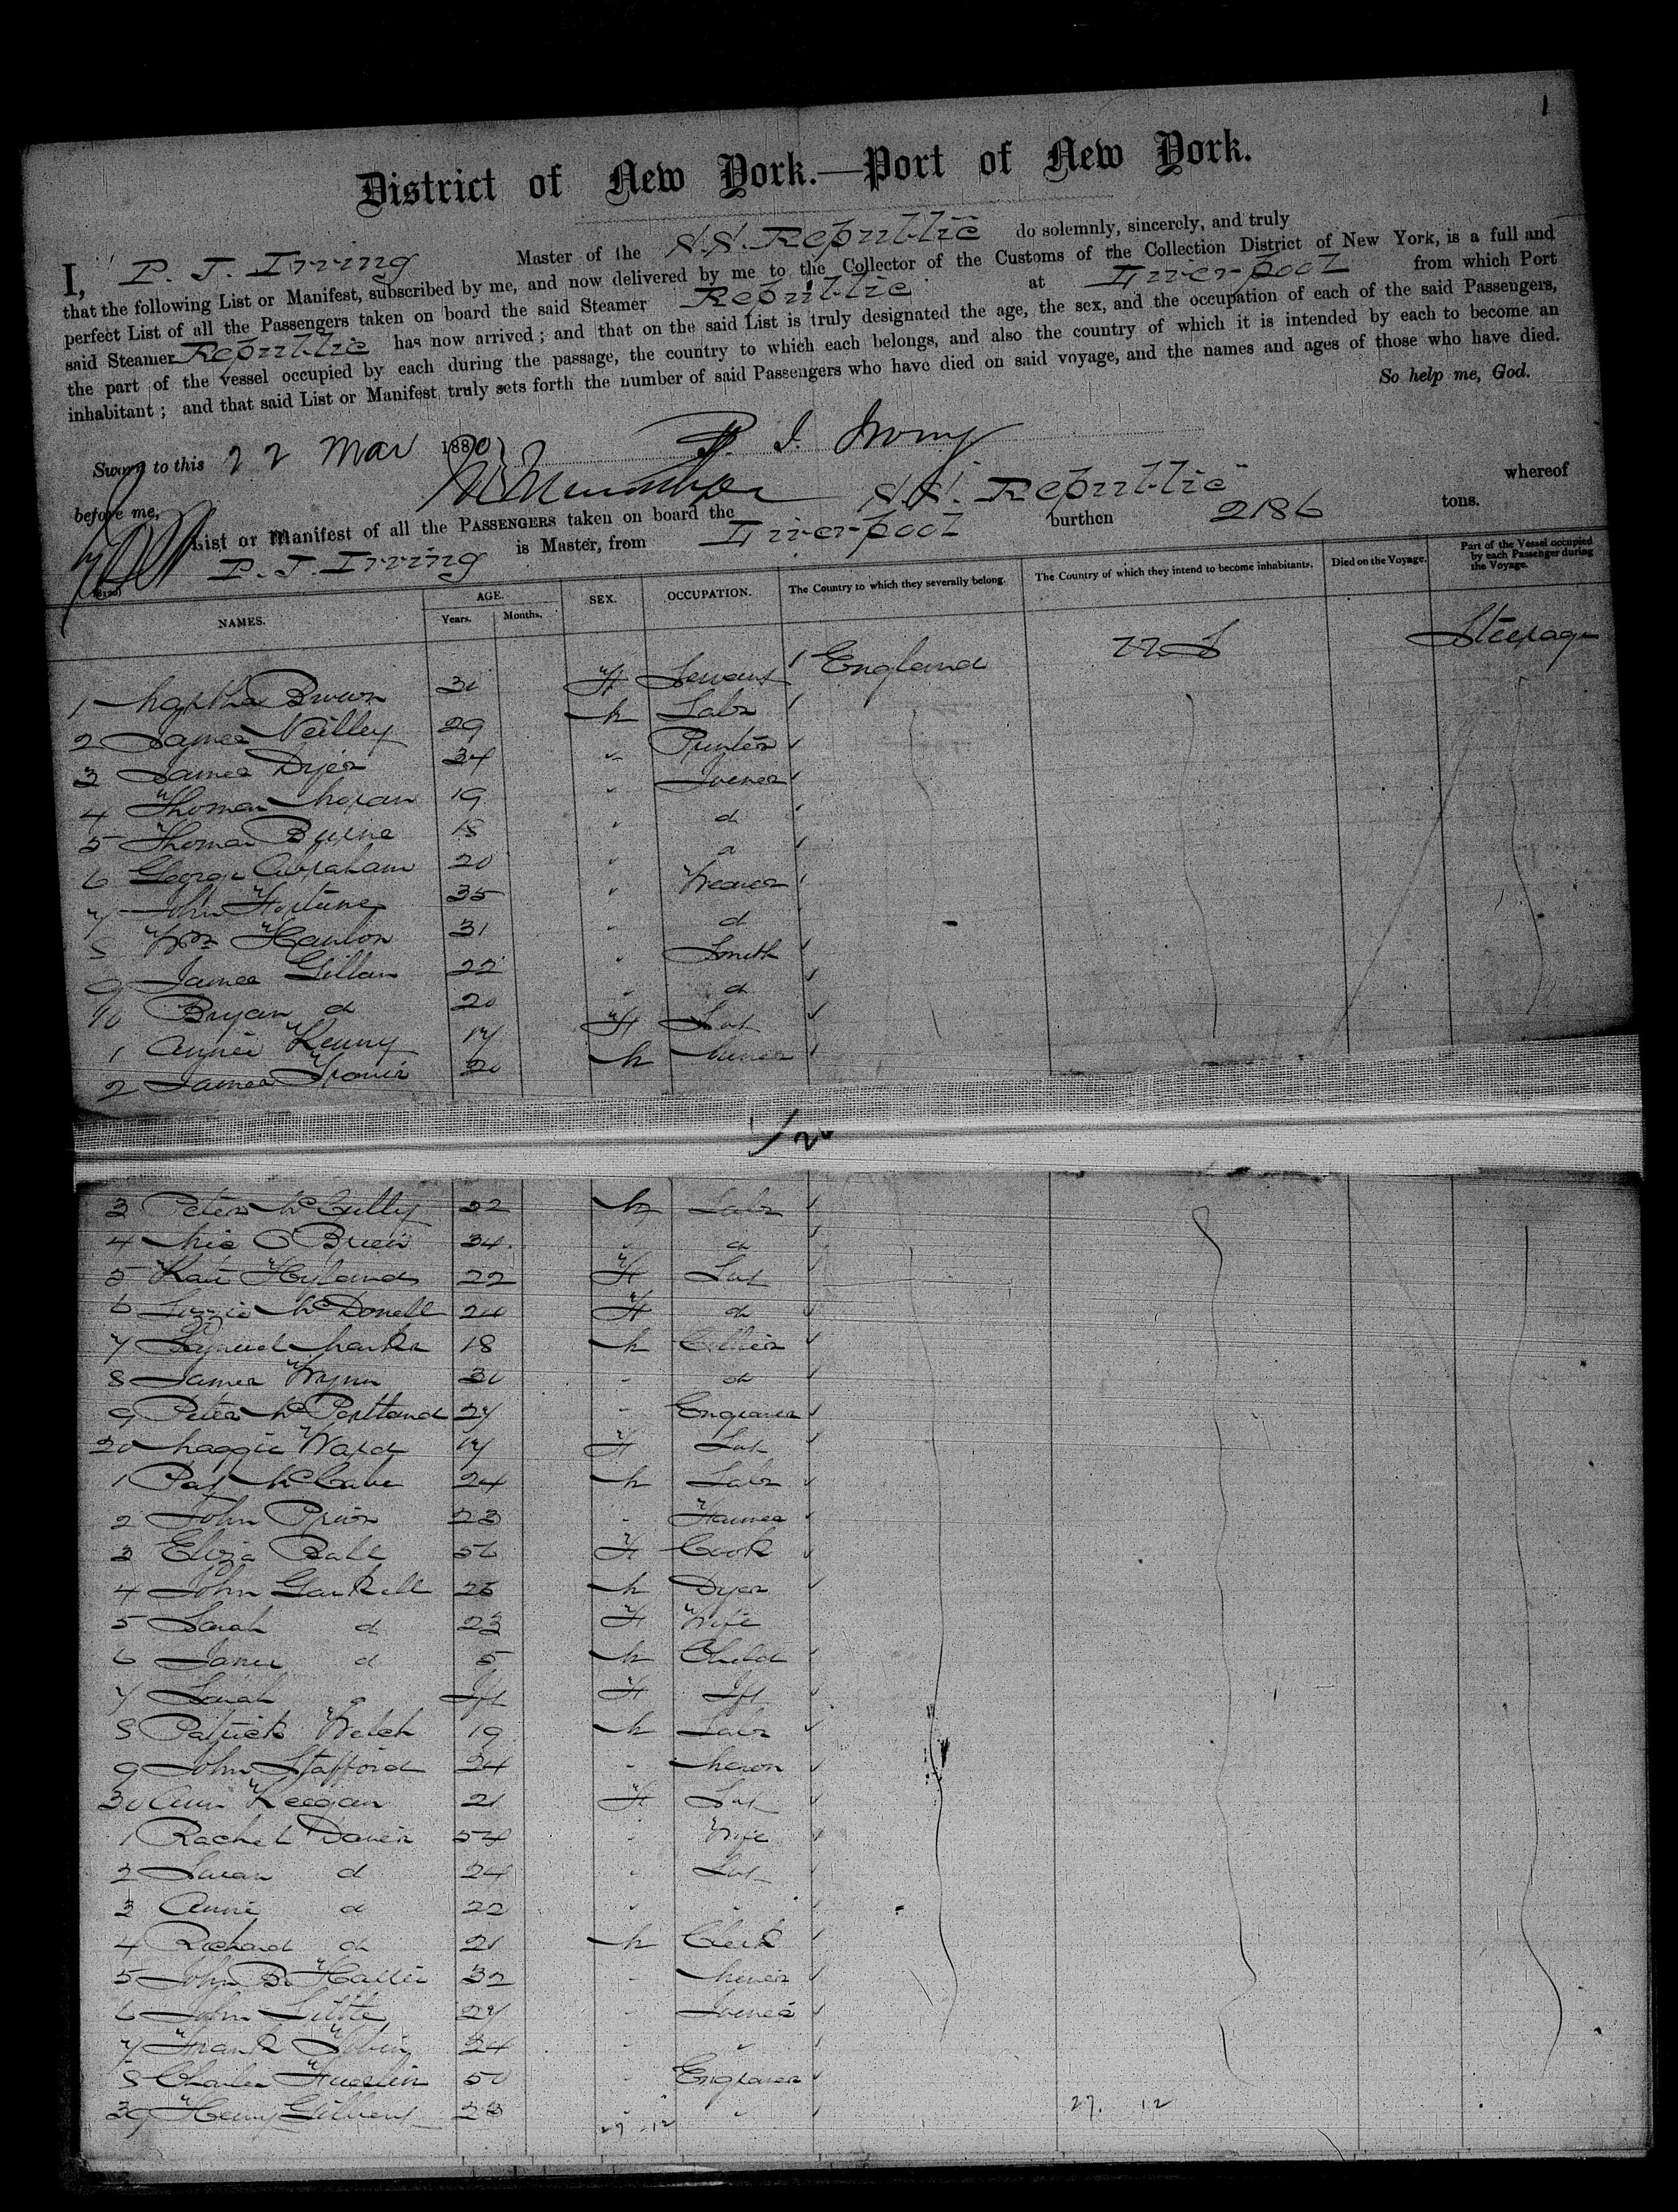 1
District of New York.—Port of New York.
I, P. J. Irving Master of the S.S. Republic do solemnly, sincerely, and truly
that the following List or Manifest, subscribed by me, and now delivered by me to the Collector of the Customs of the Collection District of New York, is a full and
perfect List of all the Passengers taken on board the said Steamer Republic at Liverpool from which Port
said Steamer Republic has now arrived; and that on the said List is truly designated the age, the sex, and the occupation of each of the said Passengers,
the part of the vessel occupied by each during the passage, the country to which each belongs, and also the country of which it is intended by each to become an
inhabitant; and that said List or Manifest truly sets forth the number of said Passengers who have died on said voyage, and the names and ages of those who have died.
So help me, God.
Sworn to this 22 Mar 1880 P. J. Irving
before me,
List or Manifest of all the PASSENGERS taken on board the S.S. Republic whereof
P. J. Irving is Master, from Liverpool burthen 2186 tons.
NAMES. AGE. Years. Months. SEX. OCCUPATION. The Country to which they severally belong. The Country of which they intend to become inhabitants. Died on the Voyage. Part of the Vessel occupied by each Passenger during the Voyage.
1 Martha Brown 30 F Servant England U S Steerage
2 James Neilley 29 M Labr
3 James Dyer 34 " Printer
4 Thomas Moran 19 " Joiner
5 Thomas Byrne 18 " d
6 George Abraham 20 " d
7 John Fortune 35 " Weaver
8 Wm Hanlon 31 " d
9 James Gillan 22 " Smith
10 Bryan d 20 " d
1 Annie Kenny 17 F Svt
2 James 20 M Miner
3 Peter McCully 22 M Labr
4 O'Brien 34 " d
5 Kate Hyland 22 F Svt
6 Lizzie McDonell 20 F d
7 Samuel Marks 18 M Collier
8 James Wynn 30 " d
9 Peter McPartland 27 " Engraver
20 Maggie Ward 17 F Svt
1 Pat McCabe 24 M Labr
2 John Prior 23 " Farmer
3 Eliza Ball 56 F Cook
4 John Gaskell 25 M Dyer
5 Sarah d 23 F Wife
6 James d 5 M Child
7 Sarah d Ift F Ift
8 Patrick Welch 19 M Labr
9 John Stafford 24 " Mason
30 Ann Keegan 21 F Svt
1 Rachel Davies 54 " Wife
2 Susan d 24 " Svt
3 Annie d 22 " "
4 Richard d 21 M Clerk
5 John B. 32 " Miner
6 John Little 27 " Joiner
7 Frank Tobin 24 " "
8 Charles 50 " Engraver
39 Henry 23 " "
27 . 12 27. 12